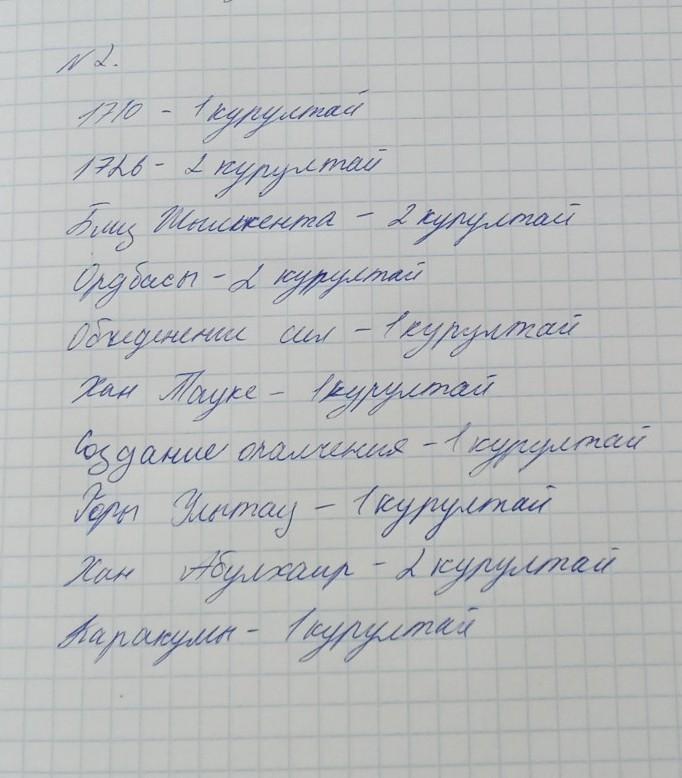 N2.
1710 - 1 курултай
1726 - 2 курултай
Близ Шымкента - 2 курултай
Ордбасы - 2 курултай
Объеденение сил - 1 курултай
Хан Тауке - 1 курултай
Создание опалчения - 1 курултай
Горы Улытау - 1 курултай
Хан Абулхаир - 2 курултай
Каракумы - 1 курултай